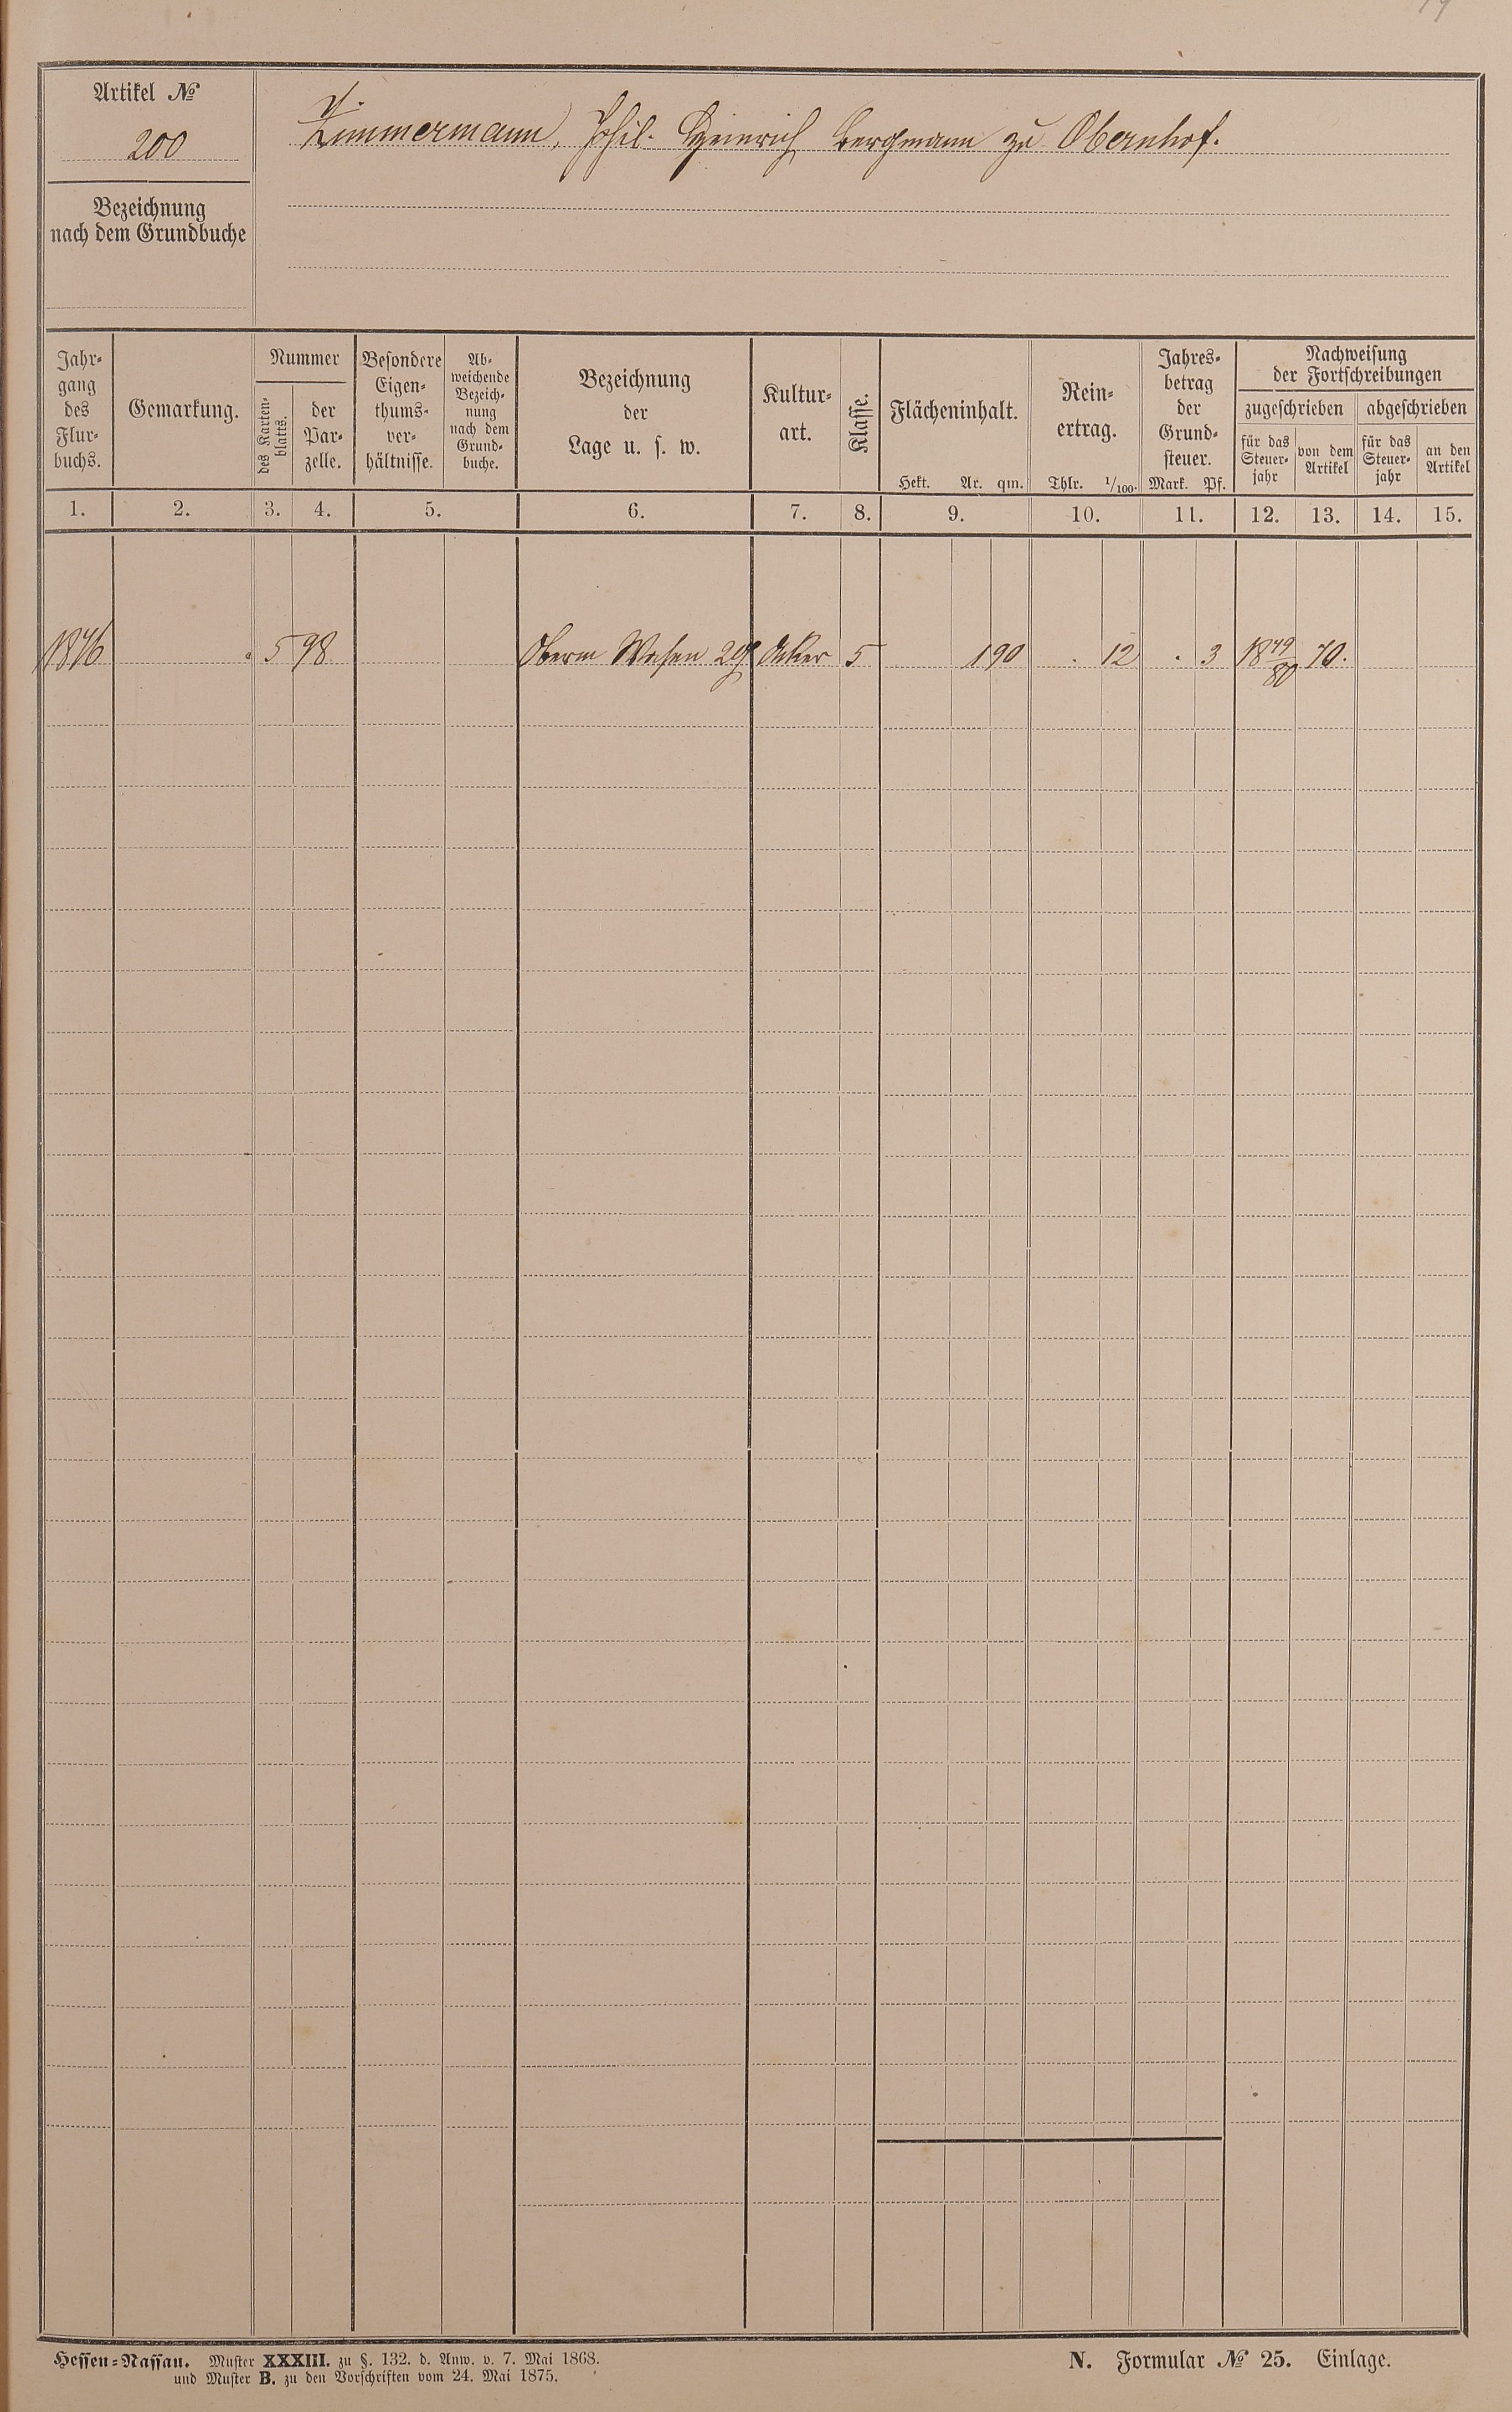 Artikel №
200
Zimmermann, Phil. Heinrich Bergmann zu Obernhof.
Bezeichnung
nach dem Grundbuche
Jahr-
gang
des
Flur-
buchs.
Gemarkung.
Nummer
des Karten-
blatts.
der
Par-
zelle.
Besondere
Eigen-
thums-
ver-
hältnisse.
Ab-
weichende
Bezeich-
nung
nach dem
Grund-
buche.
Bezeichnung
der
Lage u. s. w.
Kultur-
art.
Klasse.
Flächeninhalt.
Hekt. Ar. qm.
Rein-
ertrag.
Thlr. 1/100.
Jahres-
betrag
der
Grund-
steuer.
Mark. Pf.
Nachweisung
der Fortschreibungen
zugeschrieben
abgeschrieben
für das
Steuer-
jahr
von dem
Artikel
für das
Steuer-
jahr
an den
Artikel
1. 2. 3. 4. 5. 6. 7. 8. 9. 10. 11. 12. 13. 14. 15.
1876 5 98 Oberm Wasen Acker 5 1 90 . 12 . 3 1879/80 70.
Hessen-Nassau. Muster XXXIII. zu §. 132. d. Anw. v. 7. Mai 1868.
und Muster B. zu den Vorschriften vom 24. Mai 1875.
N. Formular № 25. Einlage.